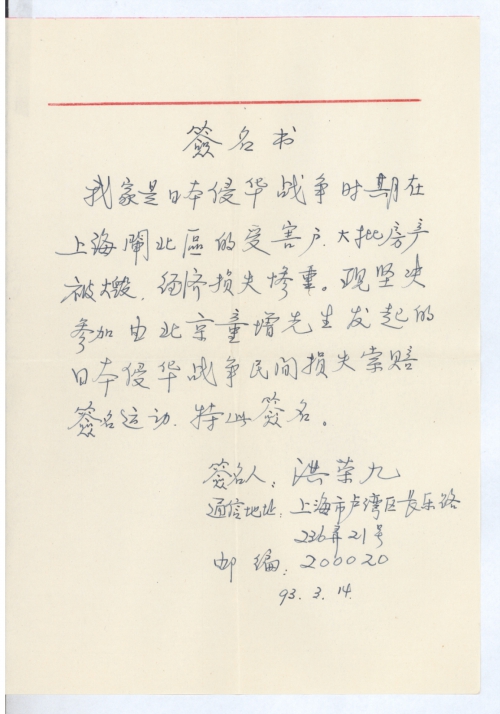 簽名书
我家是日本侵华战争时期在
上海閘北區的受害户.大批房产
被燬.经济损失惨重。现坚决
参加由北京童增先生发起的
日本侵华战争民间损失索赔
簽名运动.特此簽名。
簽名人:洪荣九
通信地址:上海市卢湾区长乐路
236弄21号
邮编:200020
93.3.14.